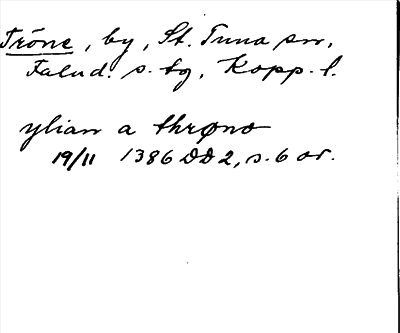 Tröne, by, St. Tuna sn,
Falud. s. tg, Kopp. l.
ylian a thrøno
19/11 1386 DD 2, s. 6 or.